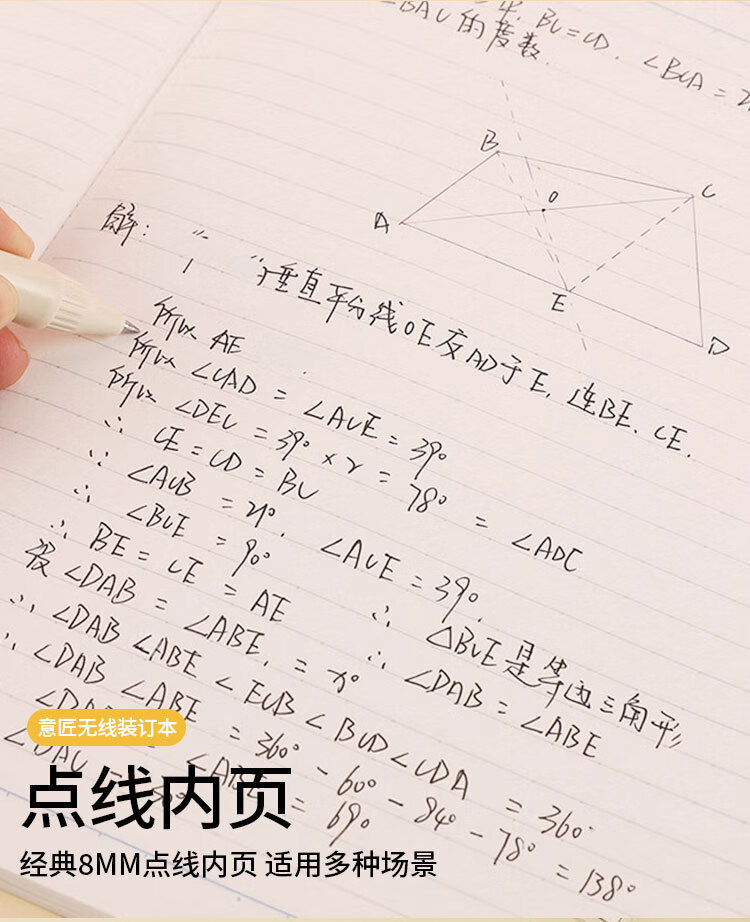 ∠BAC的度数.
BC=CD. ∠BCA=2
B
C
A
O
E
D
解:
垂直平分线OE交AD于E, 连BE、CE.
所以 AE
所以 ∠CAD = ∠ACE = 39°
所以 ∠DEC = 39° × 2 = 78° = ∠ADC
∴ CE = CD = BC
∵ ∠ACB = 21°, ∠ACE = 39°,
∴ ∠BCE = 90° ∴ △BCE是等边三角形
∴ BE = CE = AE ∴ ∠DAB = ∠ABE
设 ∠DAB = ∠ABE. = x°
∴ ∠DAB ∠ABE < ECB < BCD < CDA = 360°
∴ ∠DAB ∠ABE = 360° - 60° - 84° - 78° = 138°
= 69°
意匠无线装订本
点线内页
经典8MM点线内页 适用多种场景